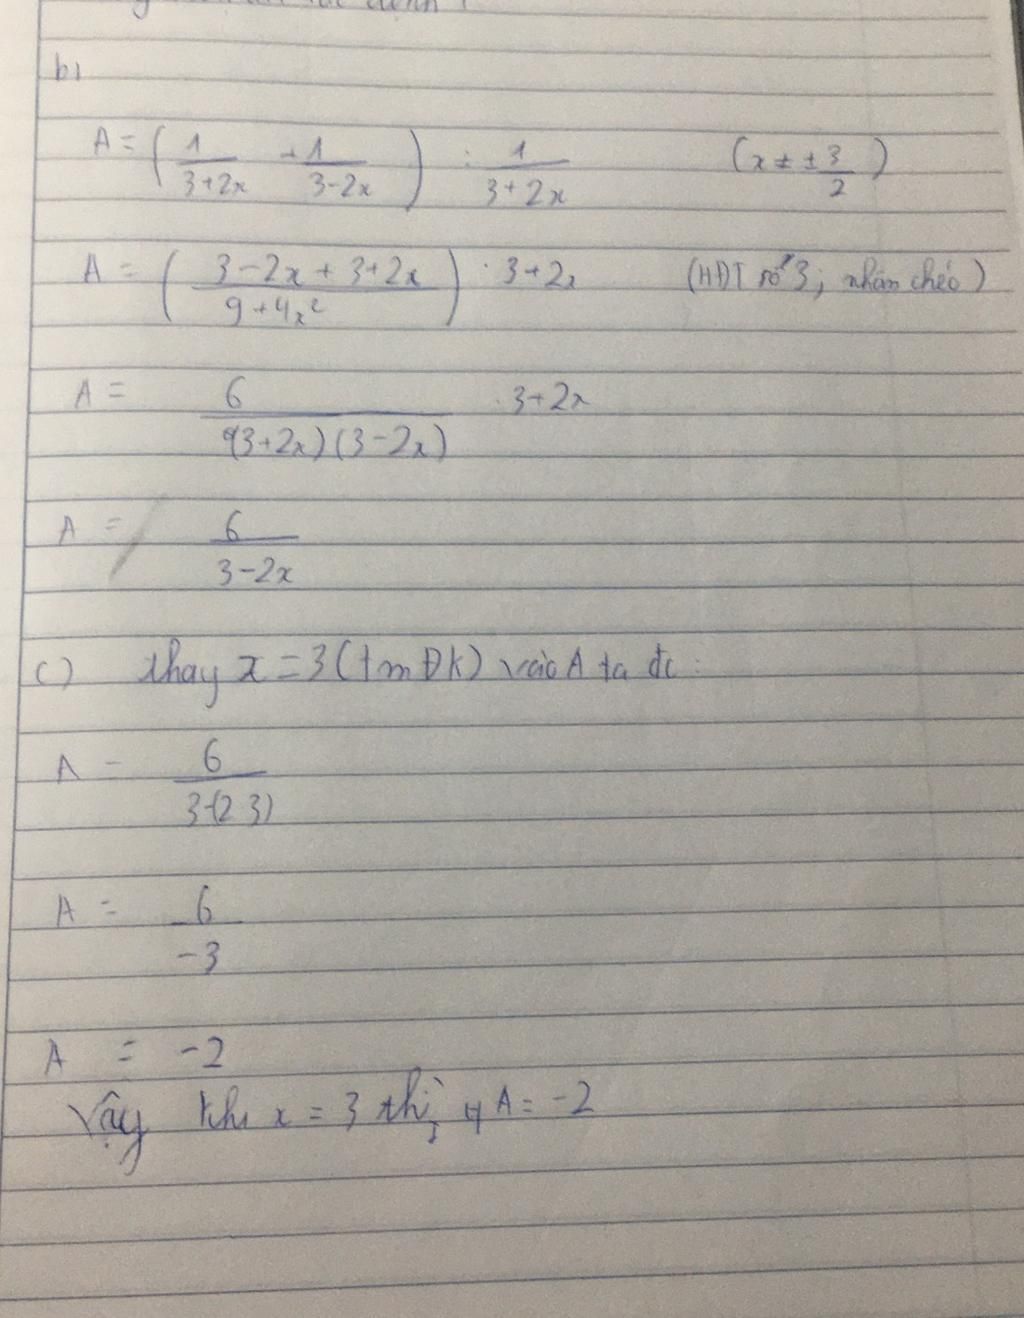 b)
A = ( 1/(3+2x) + 1/(3-2x) ) : 1/(3+2x) (x ≠ ± 3/2)
A = ( (3-2x+3+2x)/(9+4x²) ) . 3+2x (HĐT số 3; nhân chéo)
A = 6/((3+2x)(3-2x)) . 3+2x
A = 6/(3-2x)
c) thay x = 3 (tm ĐK) vào A ta đc:
A = 6/(3-(2.3))
A = 6/-3
A = -2
Vậy khi x = 3 thì A = -2